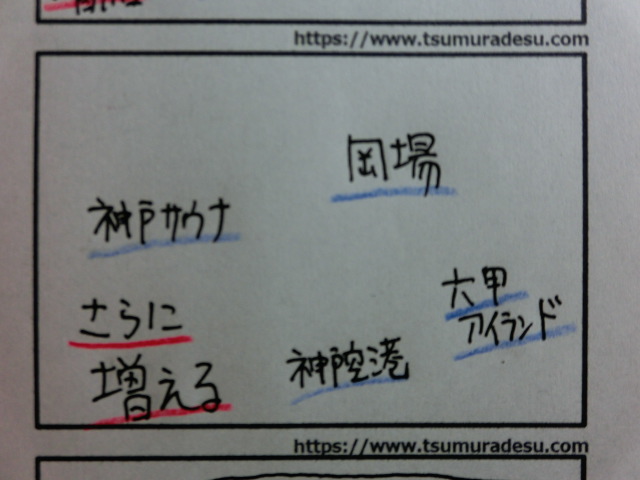 https://www.tsumuradesu.com
岡場
神戸サウナ
六甲
アイランド
さらに
増える
神戸空港
https://www.tsumuradesu.com